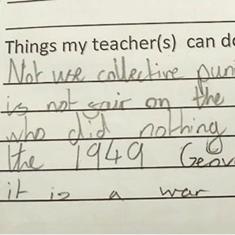 Things my teacher(s) can do
Not use collective puni
is not fair on the
who did nothing
the 1949 Genev
it is a war